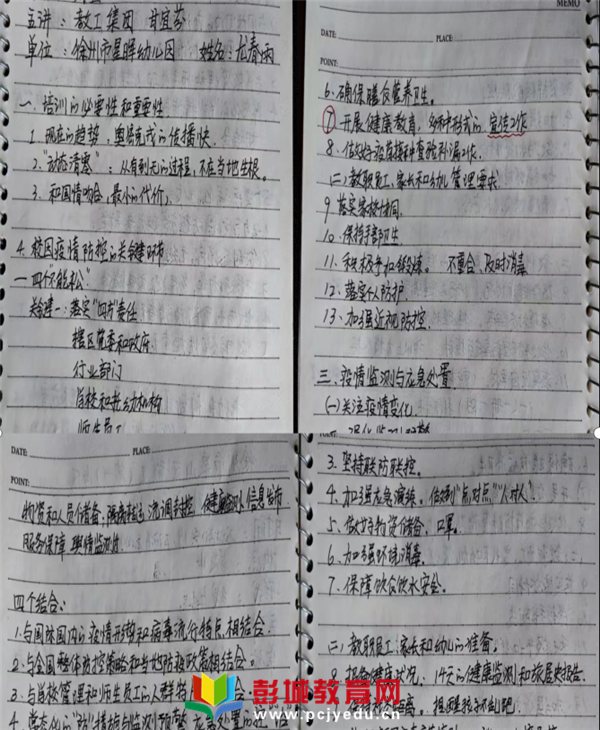 主讲：教工集团 甘宜芬
单位：徐州市星晖幼儿园 姓名：尤春雨
一、培训的必要性和重要性
1.现在的趋势，奥密克戎的传播快.
2."动态清零"：从有到无的过程，不在当地生根。
3.和国情吻合，最小的代价，
4.校园疫情防控的关键环节
一四个不能松"
关键一：落实"四方"责任
辖区党委和政府
行业部门
学校和托幼机构
师生员工
MEMO
DATE: PLACE:
POINT:
6.确保膳食营养卫生。
⑦开展健康教育，多种形式的宣传工作
8.做好疫苗接种查验补漏工作.
(二)教职员工、家长和幼儿管理要求
9.落实家校协同.
10.保持手部卫生
11.积极参加锻炼。 不聚会 及时消毒
12.落实个人防护.
13.加强近视防控.
三.疫情监测与应急处置.
(一)关注疫情变化.
DATE: PLACE:
POINT:
物资和人员储备，隔离转运 流调封控 健康监测 信息发布
服务保障 舆情监测
四个结合：
1.与国际国内的疫情形势和病毒流行特点相结合.
2.与全国整体防控策略和当地防疫政策相结合.
3.与学校管理和师生员工的人群特
4.常态化的"防"措施和监测预警
POINT:
3.坚持联防联控.
4.加强应急演练。做到"点对点""人对人"
5.做好物资储备，口罩。
6.加强环境消毒.
7.保障饮食饮水安全。
(二)教职员工、家长和幼儿的准备。
报告健康状况：14天的健康监测和旅居史报告.
彭城教育网
www.pcjyedu.cn